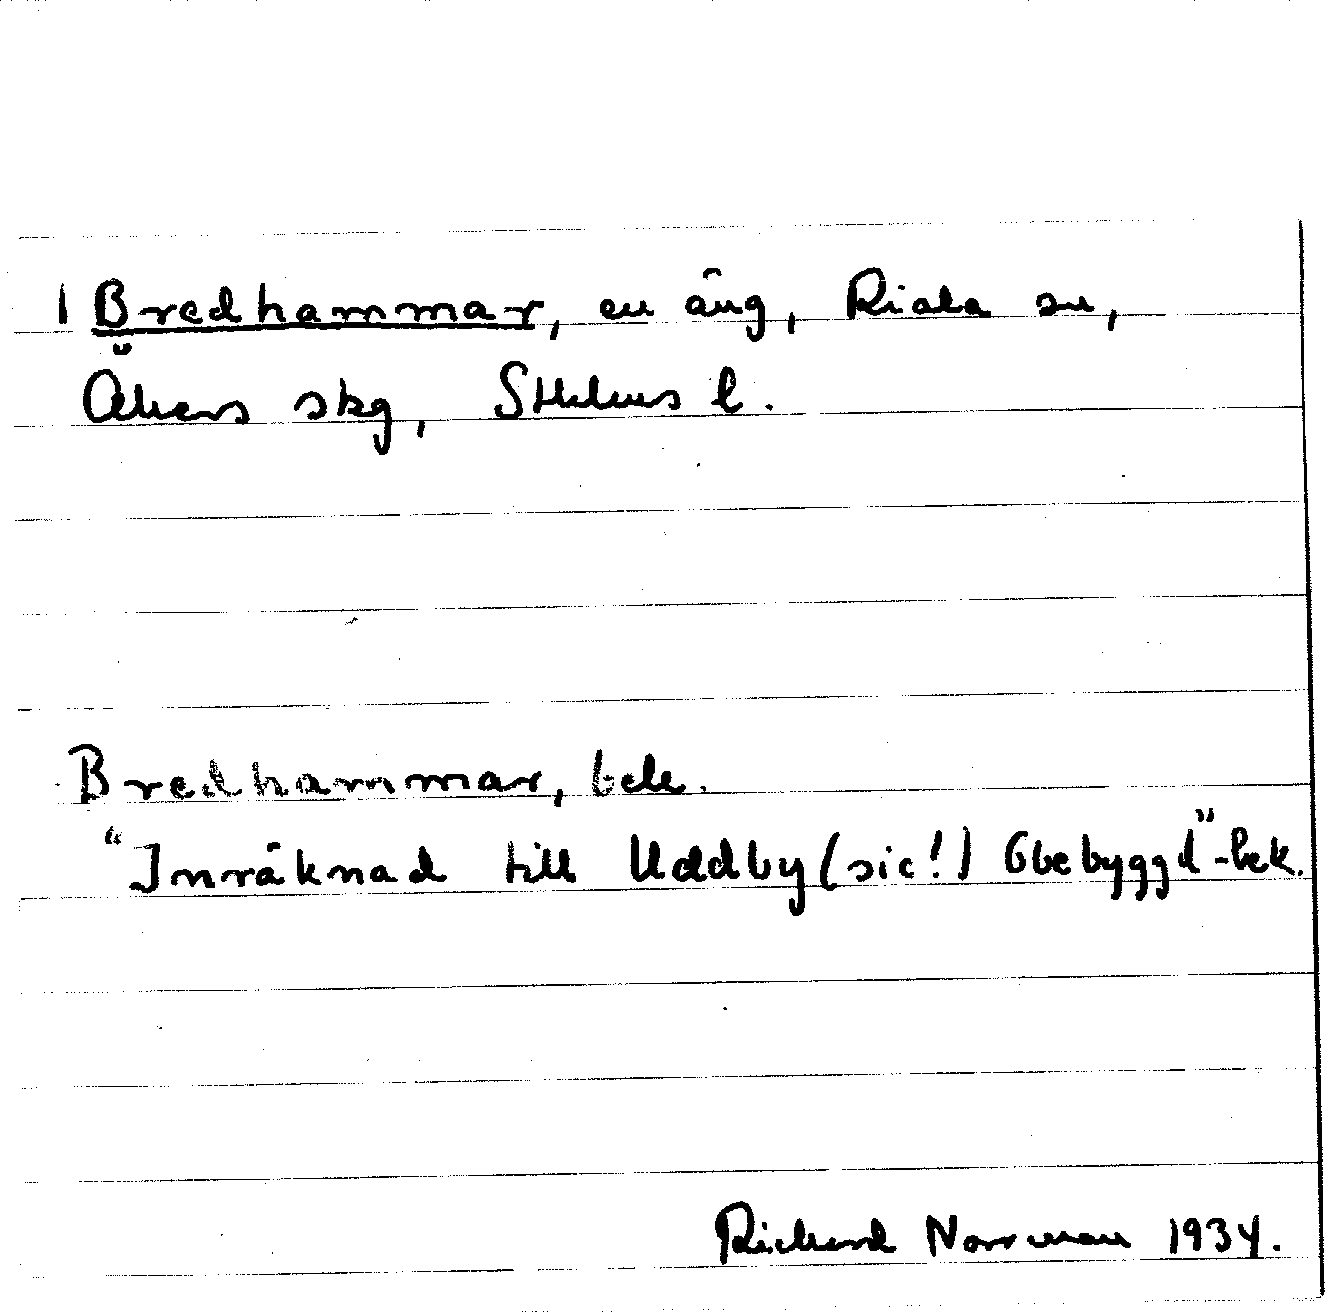 1 Bredhammar, en äng, Riala sn,
Åkers skg, Sthlms l.
Bredhammar, bek.
"Inräknad till Uddby (sic!) Obebyggd"-bek.
Richard Norrman 1934.